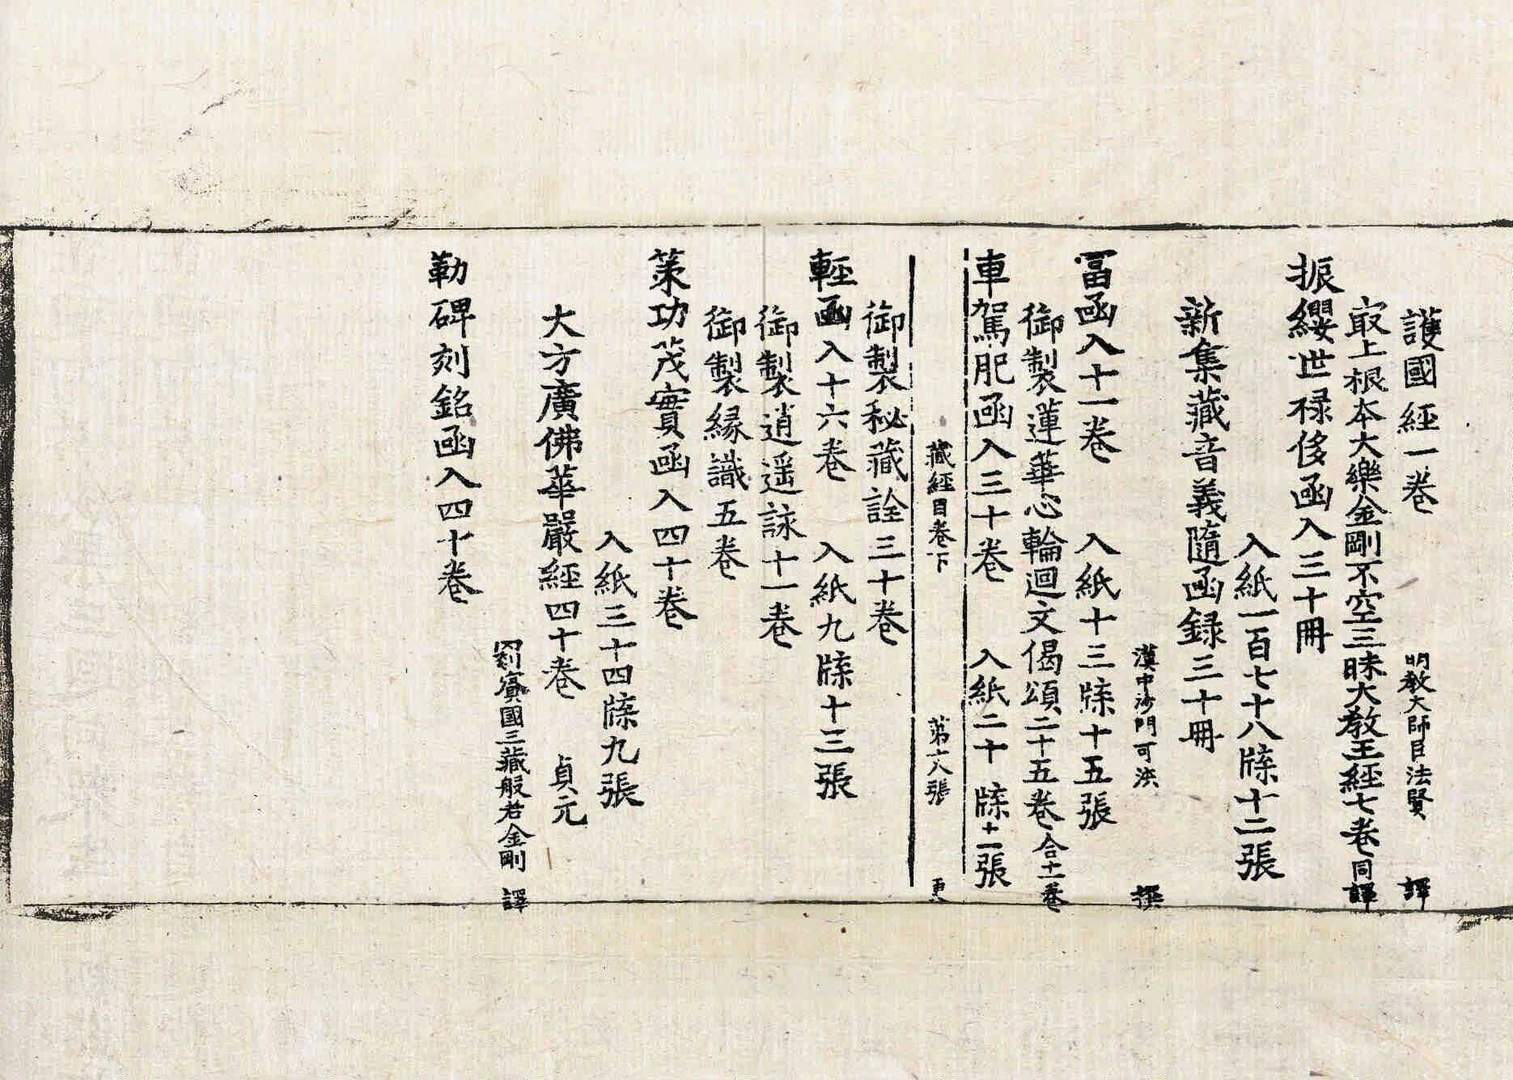 護國經一卷 明教大師臣法賢 譯
冣上根本大樂金剛不空三昧大教王經七卷同譯
振纓世禄侈函入三十冊
入紙一百七十八牒十二張
新集藏音義隨函録三十冊
漢中沙門可洪 撰
冨函入十一卷 入紙十三牒十五張
御製蓮華心輪迴文偈頌二十五卷合十一卷
車駕肥函入三十卷 入紙二十牒十一張
藏經目卷下 第六張
御製秘藏詮三十卷
輕函入十六卷 入紙九牒十三張
御製逍遥詠十一卷
御製縁識五卷
策功茂實函入四十卷
入紙三十四牒九張
大方廣佛華嚴經四十卷 貞元
罽賓國三藏般若金剛 譯
勒碑刻銘函入四十卷